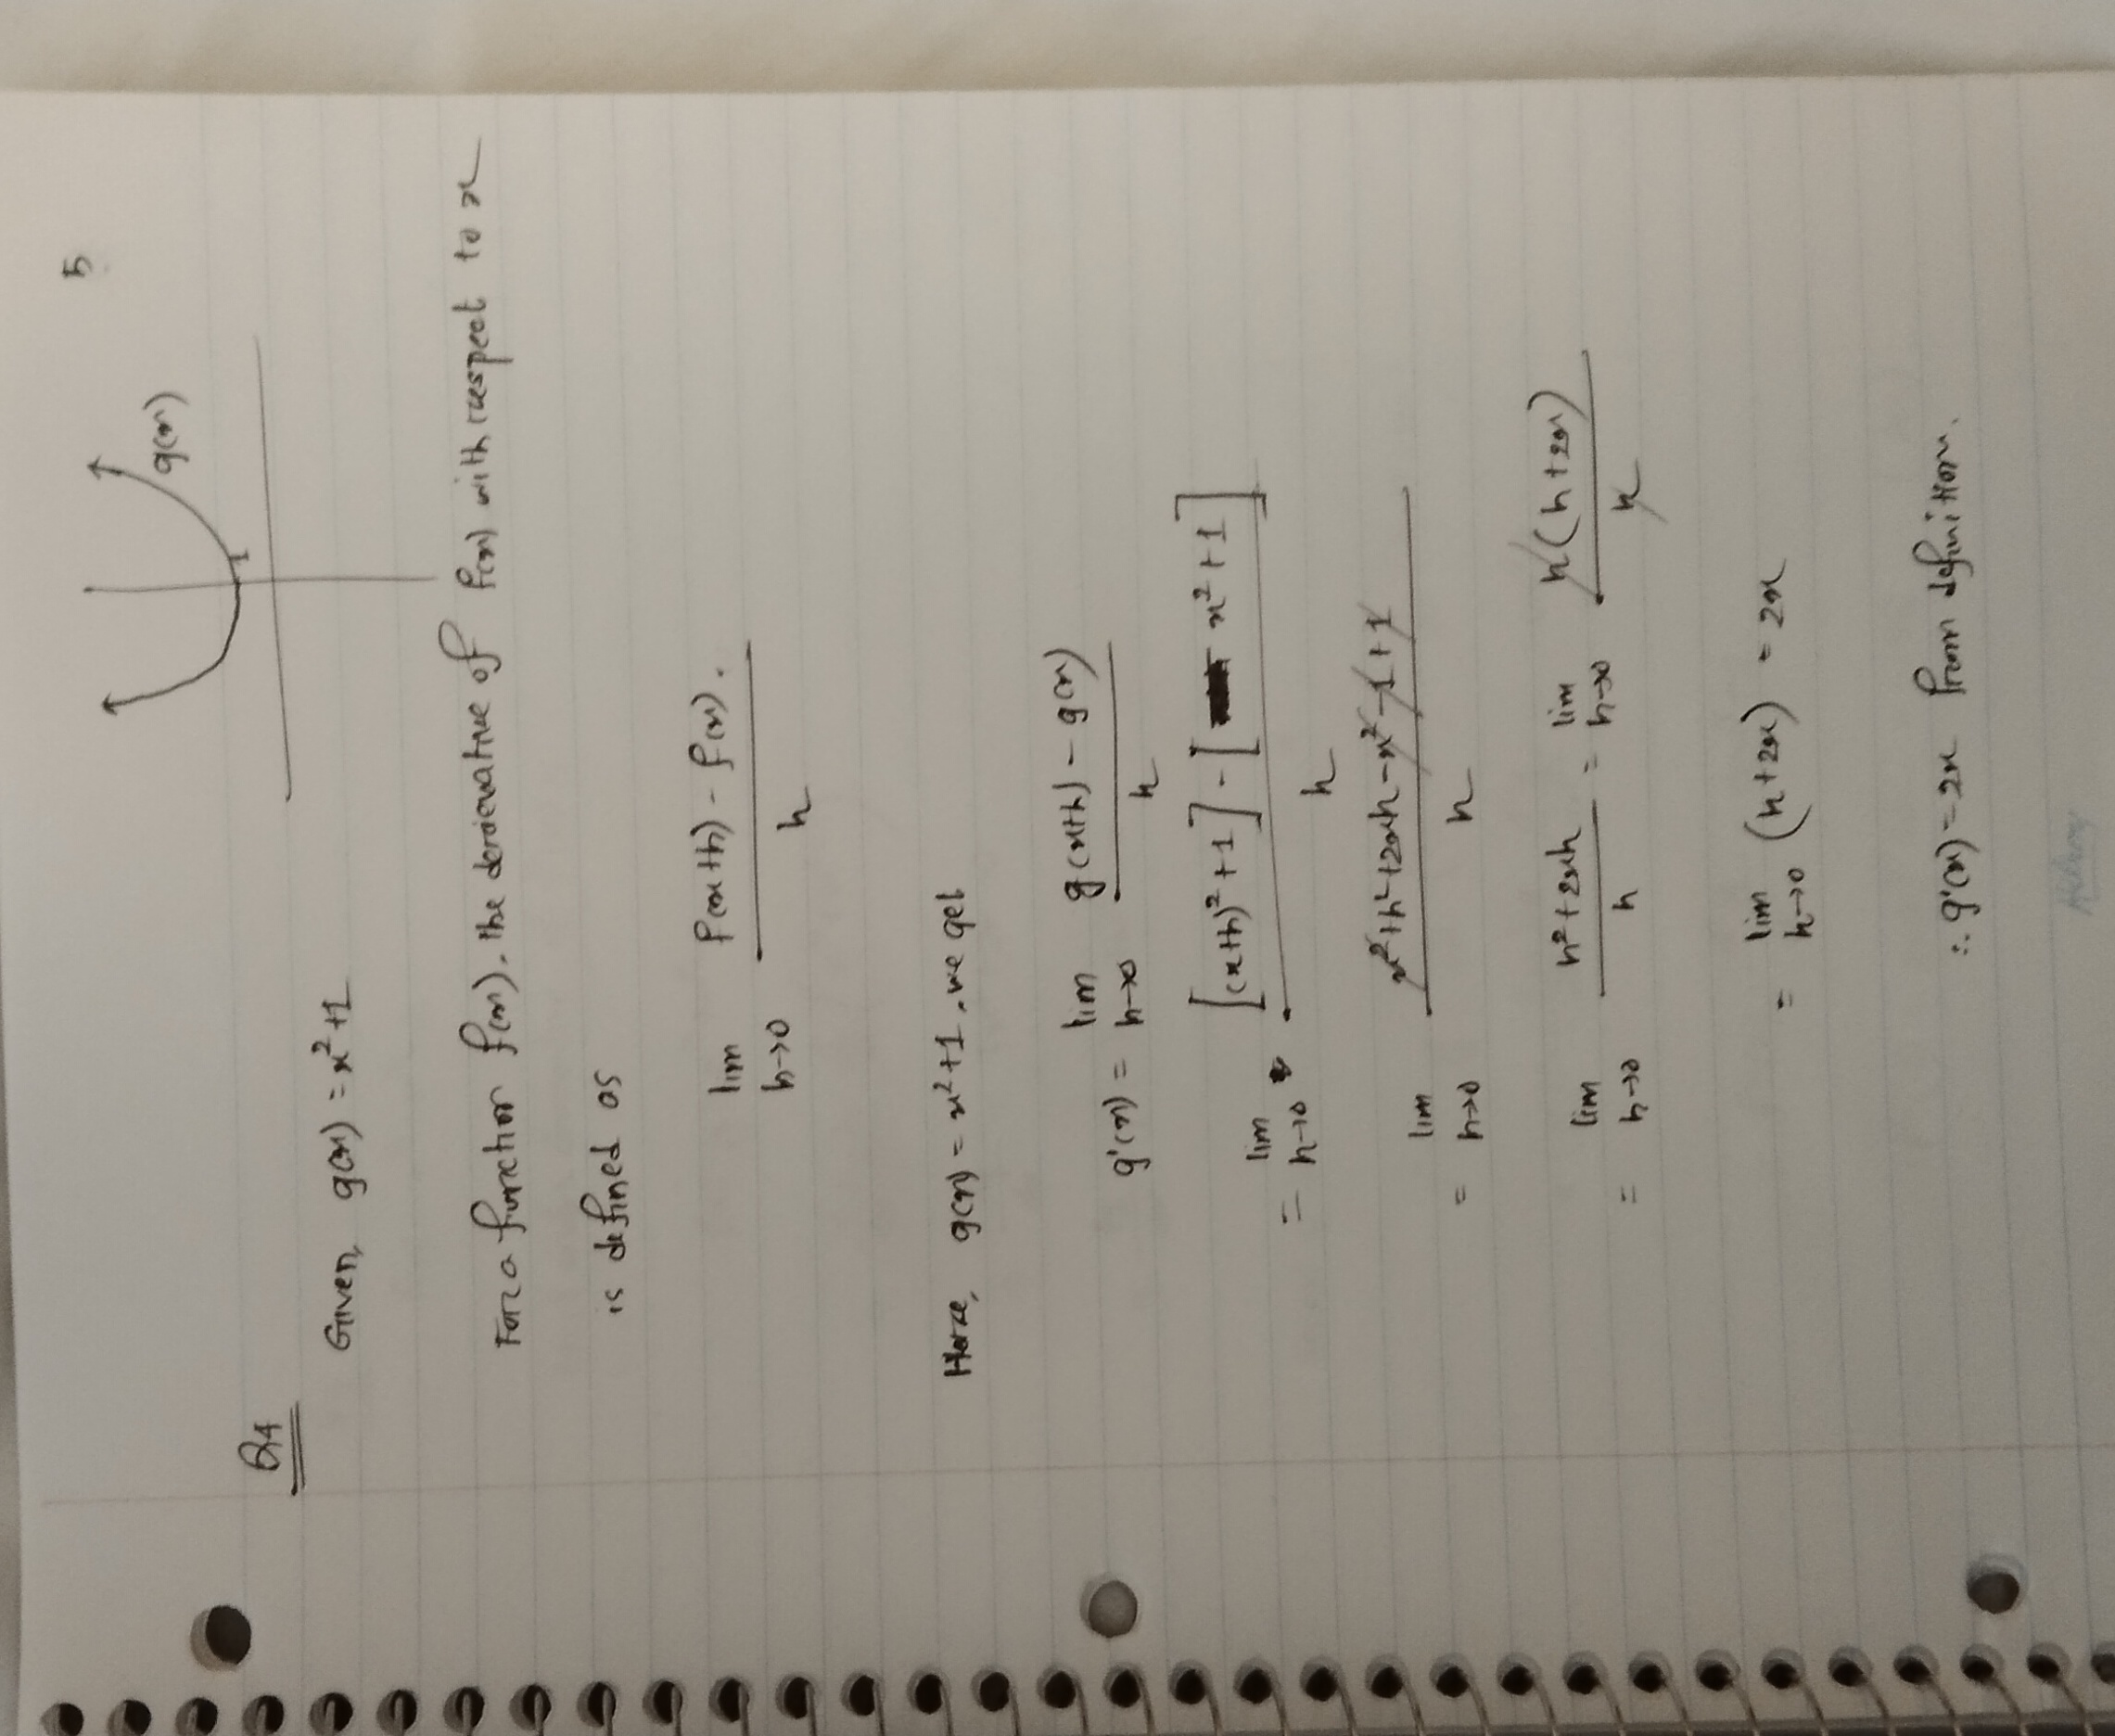 5
g(x)
1
Q4
Given, g(x) = x² + 1
For a function f(x), the derievative of f(x) with respect to x
is defined as
lim h→0 (f(x+h) - f(x)) / h
Here, g(x) = x² + 1, we get
g'(x) = lim h→0 (g(x+h) - g(x)) / h
= lim h→0 ([(x+h)² + 1] - [x² + 1]) / h
= lim h→0 (x² + h² + 2xh - x² - 1 + 1) / h
= lim h→0 (h² + 2xh) / h = lim h→0 h(h + 2x) / h
= lim h→0 (h + 2x) = 2x
∴ g'(x) = 2x from definition.
Hilroy